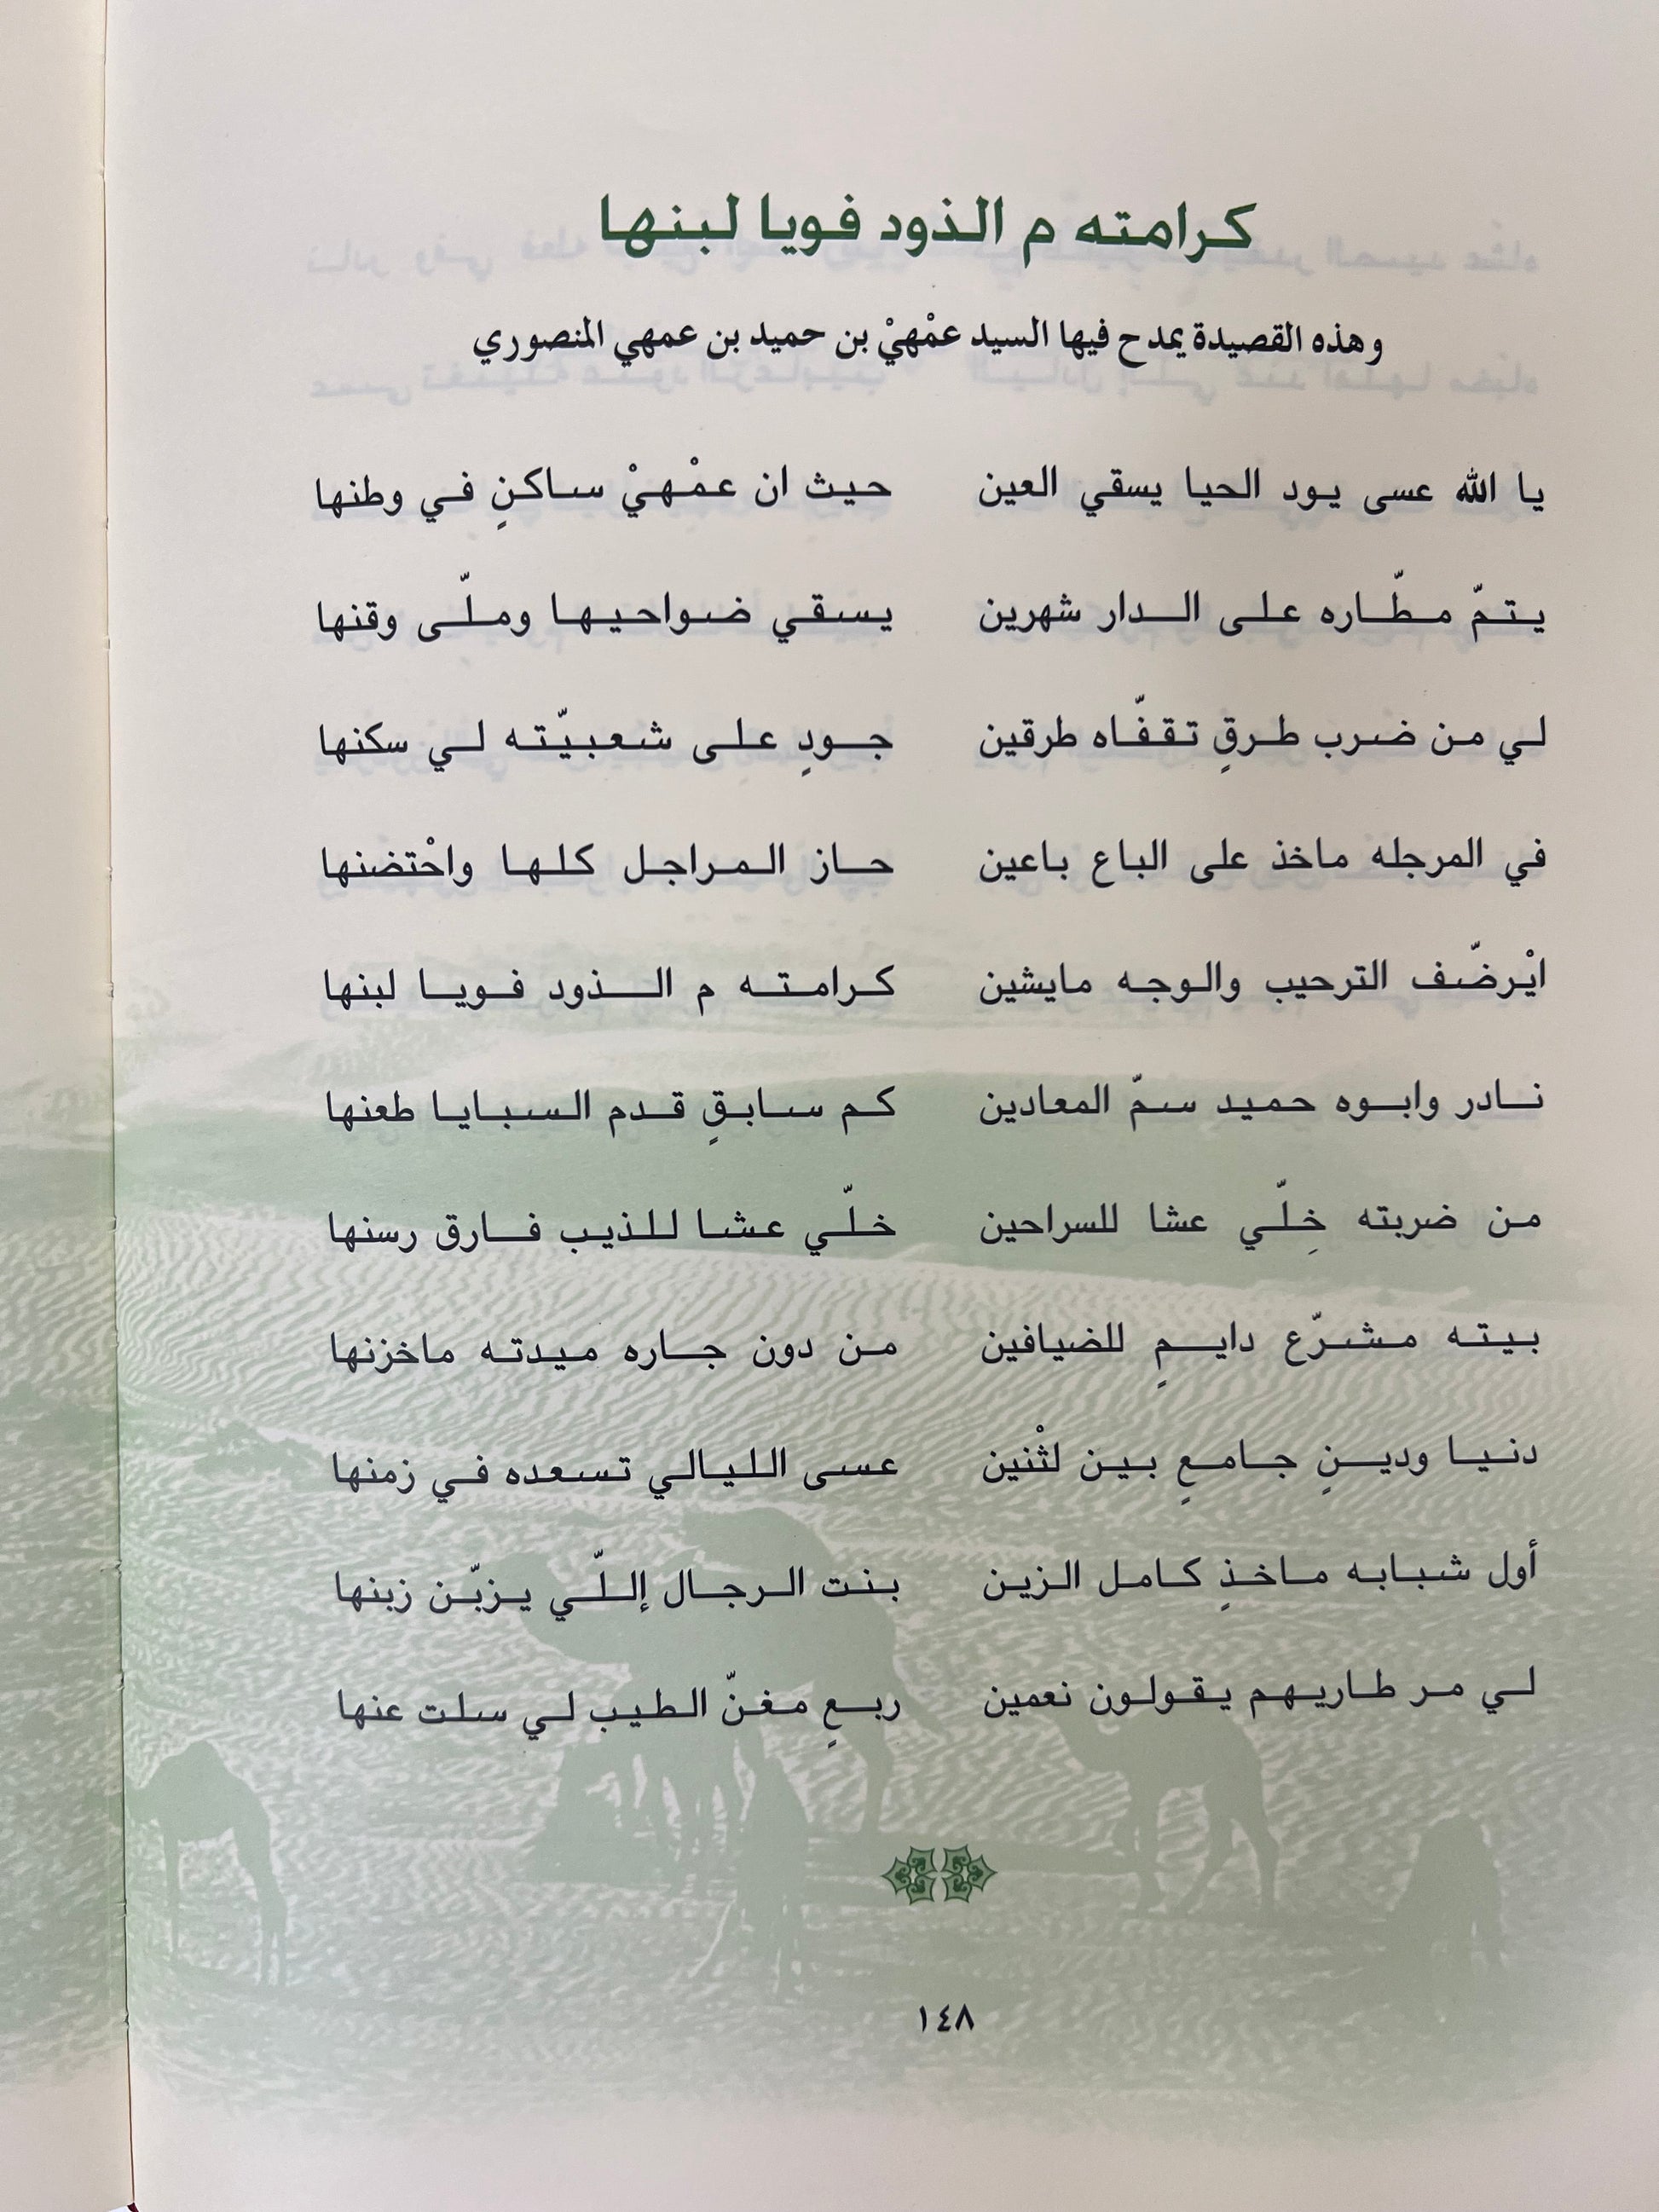 كرامته م الذود فويا لبنها
وهذه القصيدة يمدح فيها السيد عمْهيْ بن حميد بن عمهي المنصوري
يا الله عسى يود الحيا يسقي العين حيث ان عمْهيْ ساكنٍ في وطنها
يتمّ مطّاره على الدار شهرين يسقي ضواحيها وملّى وقنها
لي من ضرب طرقٍ تقفّاه طرقين جودٍ على شعبيّته لي سكنها
في المرجله ماخذ على الباع باعين حاز المراجل كلها واحْتضنها
ايْرضّف الترحيب والوجه مايشين كرامته م الذود فويا لبنها
نادر وابوه حميد سمّ المعادين كم سابقٍ قدم السبايا طعنها
من ضربته خِلّي عشا للسراحين خلّي عشا للذيب فارق رسنها
بيته مشرّع دايمٍ للضيافين من دون جاره ميدته ماخزنها
دنيا ودينٍ جامعٍ بين لثْنين عسى الليالي تسعده في زمنها
أول شبابه ماخذٍ كامل الزين بنت الرجال إللّي يزبّن زبنها
لي مر طاريهم يقولون نعمين ربعٍ مغنّ الطيب لي سلت عنها
١٤٨